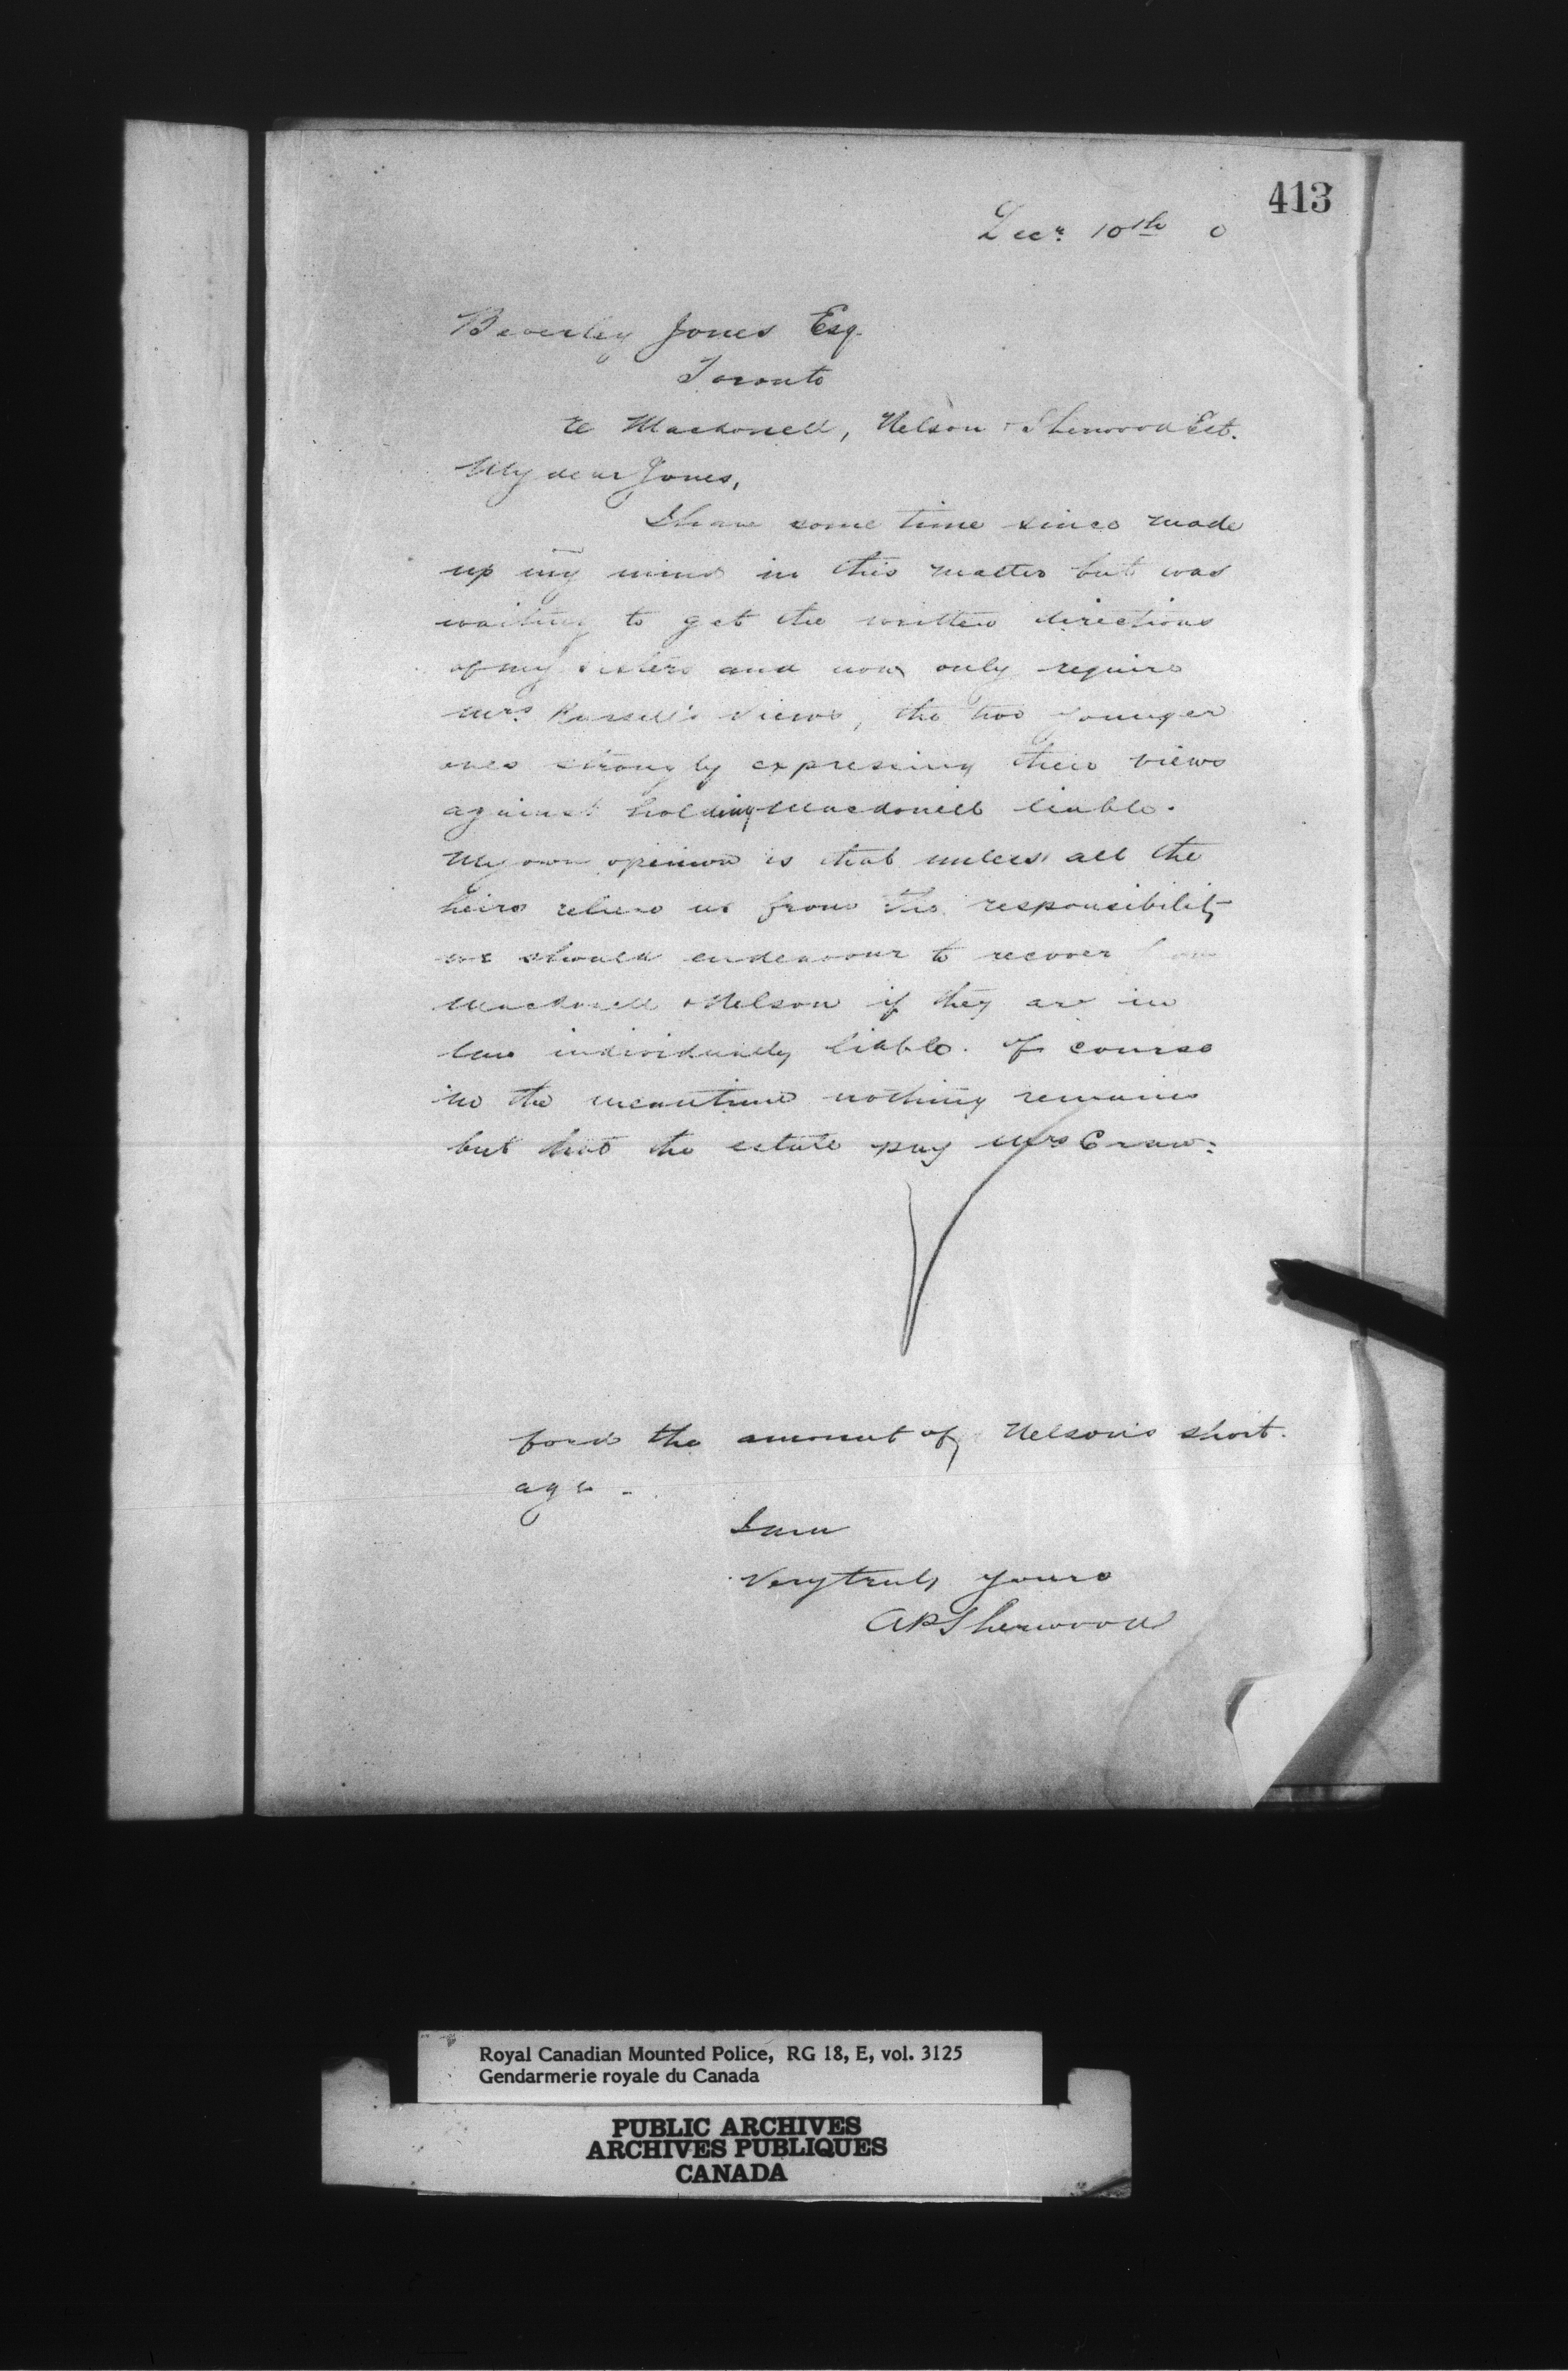 413
Decr. 10th 0
Beverley Jones Esq.
Toronto
re Macdonell, Nelson & Sherwood Est.
My dear Jones,
I have some time since made
up my mind in this matter but was
waiting to get the written directions
of my sisters and now only require
Mrs. Russell's views, the two younger
ones strongly expressing their views
against holding Macdonell liable.
My own opinion is that unless all the
heirs relieve us from the responsibility
we should endeavour to recover from
Macdonell & Nelson if they are in
law individually liable. Of course
in the meantime nothing remains
but that the estate pay Mrs Craw:
ford the amount of Nelson's short.
age.
I am
Very truly yours
APSherwood
Royal Canadian Mounted Police, RG 18, E, vol. 3125
Gendarmerie royale du Canada
PUBLIC ARCHIVES
ARCHIVES PUBLIQUES
CANADA